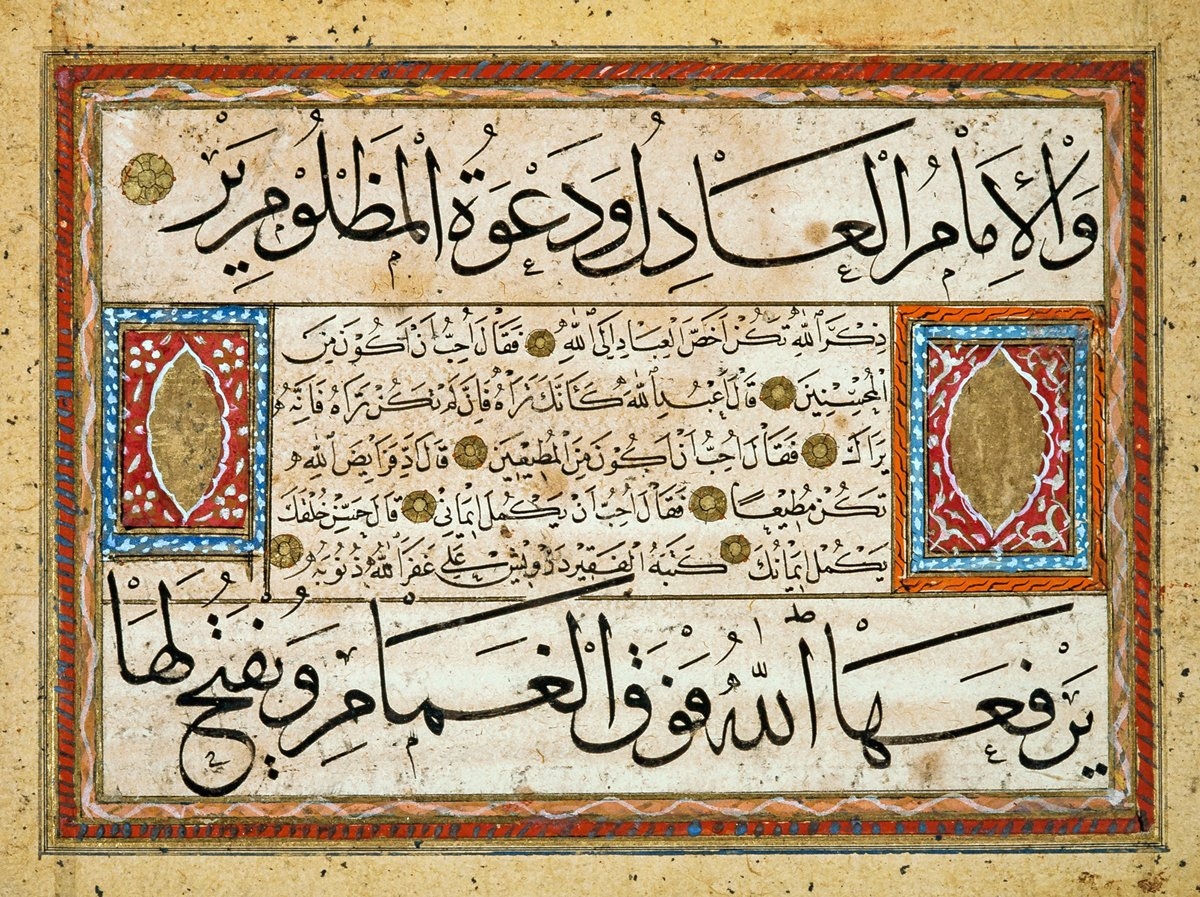 وَالْإِمَامُ الْعَادِلُ وَدَعْوَةُ الْمَظْلُومِ يَرْ
ذِكْرَ اللّٰهِ تَكُنْ أَخَصَّ الْعِبَادِ إِلَى اللّٰهِ فَقَالَ أُحِبُّ أَنْ أَكُونَ مِنَ
الْمُحْسِنِينَ قَالَ اعْبُدِ اللّٰهَ كَأَنَّكَ تَرَاهُ فَإِنْ لَمْ تَكُنْ تَرَاهُ فَإِنَّهُ
يَرَاكَ فَقَالَ أُحِبُّ أَنْ أَكُونَ مِنَ الْمُطِيعِينَ قَالَ أَدِّ فَرَايِضَ اللّٰهِ
تَكُنْ مُطِيعًا فَقَالَ أُحِبُّ أَنْ يَكْمُلَ إِيمَانِي قَالَ حَسِّنْ خُلْقَكَ
يَكْمُلْ إِيمَانُكَ كَتَبَهُ الْفَقِيرُ دَرْوِيشْ عَلِي غَفَرَ اللّٰهُ ذُنُوبَهُ
يَرْفَعُهَا اللّٰهُ فَوْقَ الْغَمَامِ وَيَفْتَحُ لَهَا